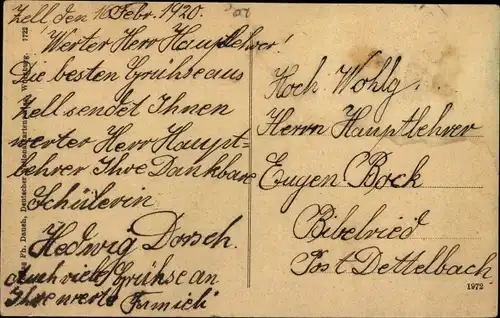 Zell den 16 Febr. 1920.
Werter Herr Hauptlehrer!
Die besten Grühse aus
Zell sendet Ihnen
werter Herr Haupt=
lehrer Ihre Dankbare
Schülerin
Hedwig Dorsch.
Auch viele Grühse an
Ihre werte Familie
Hoch Wohlg.
Herrn Hauptlehrer
Eugen Bock
Bibelried
Post Dettelbach
Ph. Danch, Deutscher Würzburg. 7722
1972